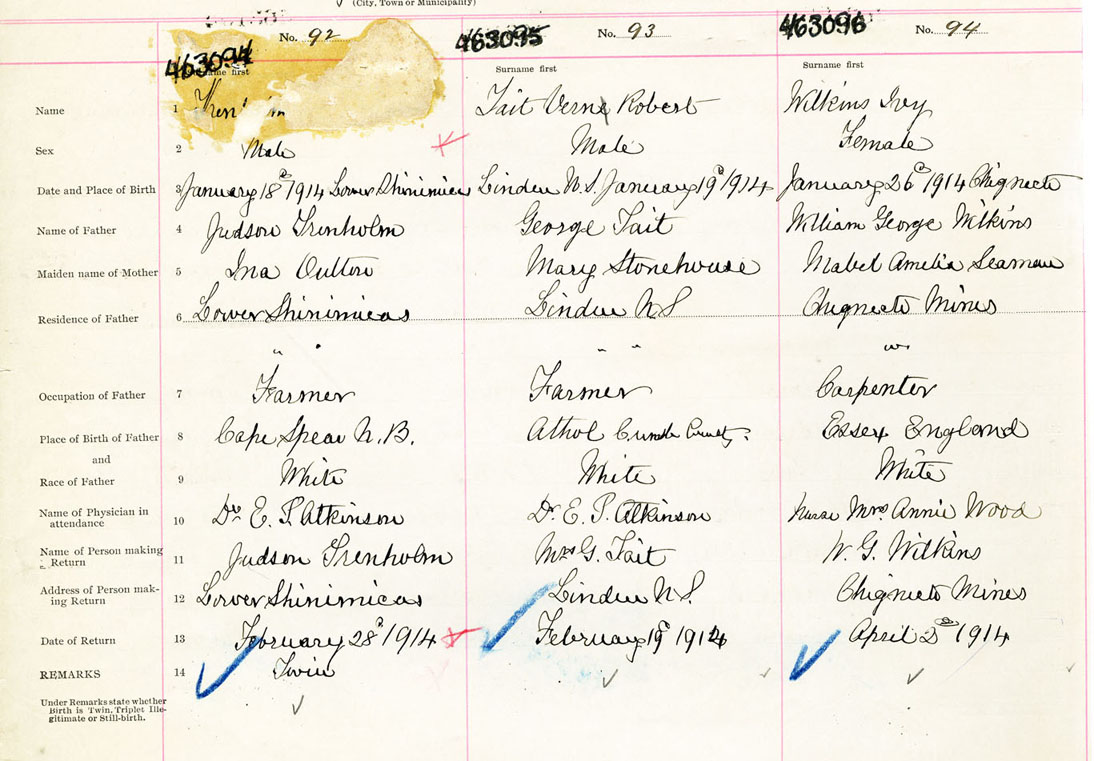 (City, Town or Municipality)
463094 No. 92 463095 No. 93 463096 No. 94
Surname first Surname first
Name 1 Tait Verne Robert Wilkins Ivy
Sex 2 Male Male Female
Date and Place of Birth 3 January 18th 1914 Lower Shinimicas Linden N.S. January 19th 1914 January 26th 1914 Chignecto
Name of Father 4 Judson Trenholm George Tait William George Wilkins
Maiden name of Mother 5 Ina Oulton Mary Stonehouse Mabel Amelia Seaman
Residence of Father 6 Lower Shinimicas Linden N.S Chignecto Mines
" " " " "
Occupation of Father 7 Farmer Farmer Carpenter
Place of Birth of Father 8 Cape Spear N.B. Athol Cumb County. Essex England
and
Race of Father 9 White White White
Name of Physician in attendance 10 Dr E. P. Atkinson Dr. E. P. Atkinson Nurse Mrs Annie Wood
Name of Person making Return 11 Judson Trenholm Mrs G. Tait W. G. Wilkins
Address of Person making Return 12 Lower Shinimicas Linden N.S. Chignecto Mines
Date of Return 13 February 28th 1914 February 19th 1914 April 2nd 1914
REMARKS 14 Twin
Under Remarks state whether
Birth is Twin, Triplet Ille-
gitimate or Still-birth.